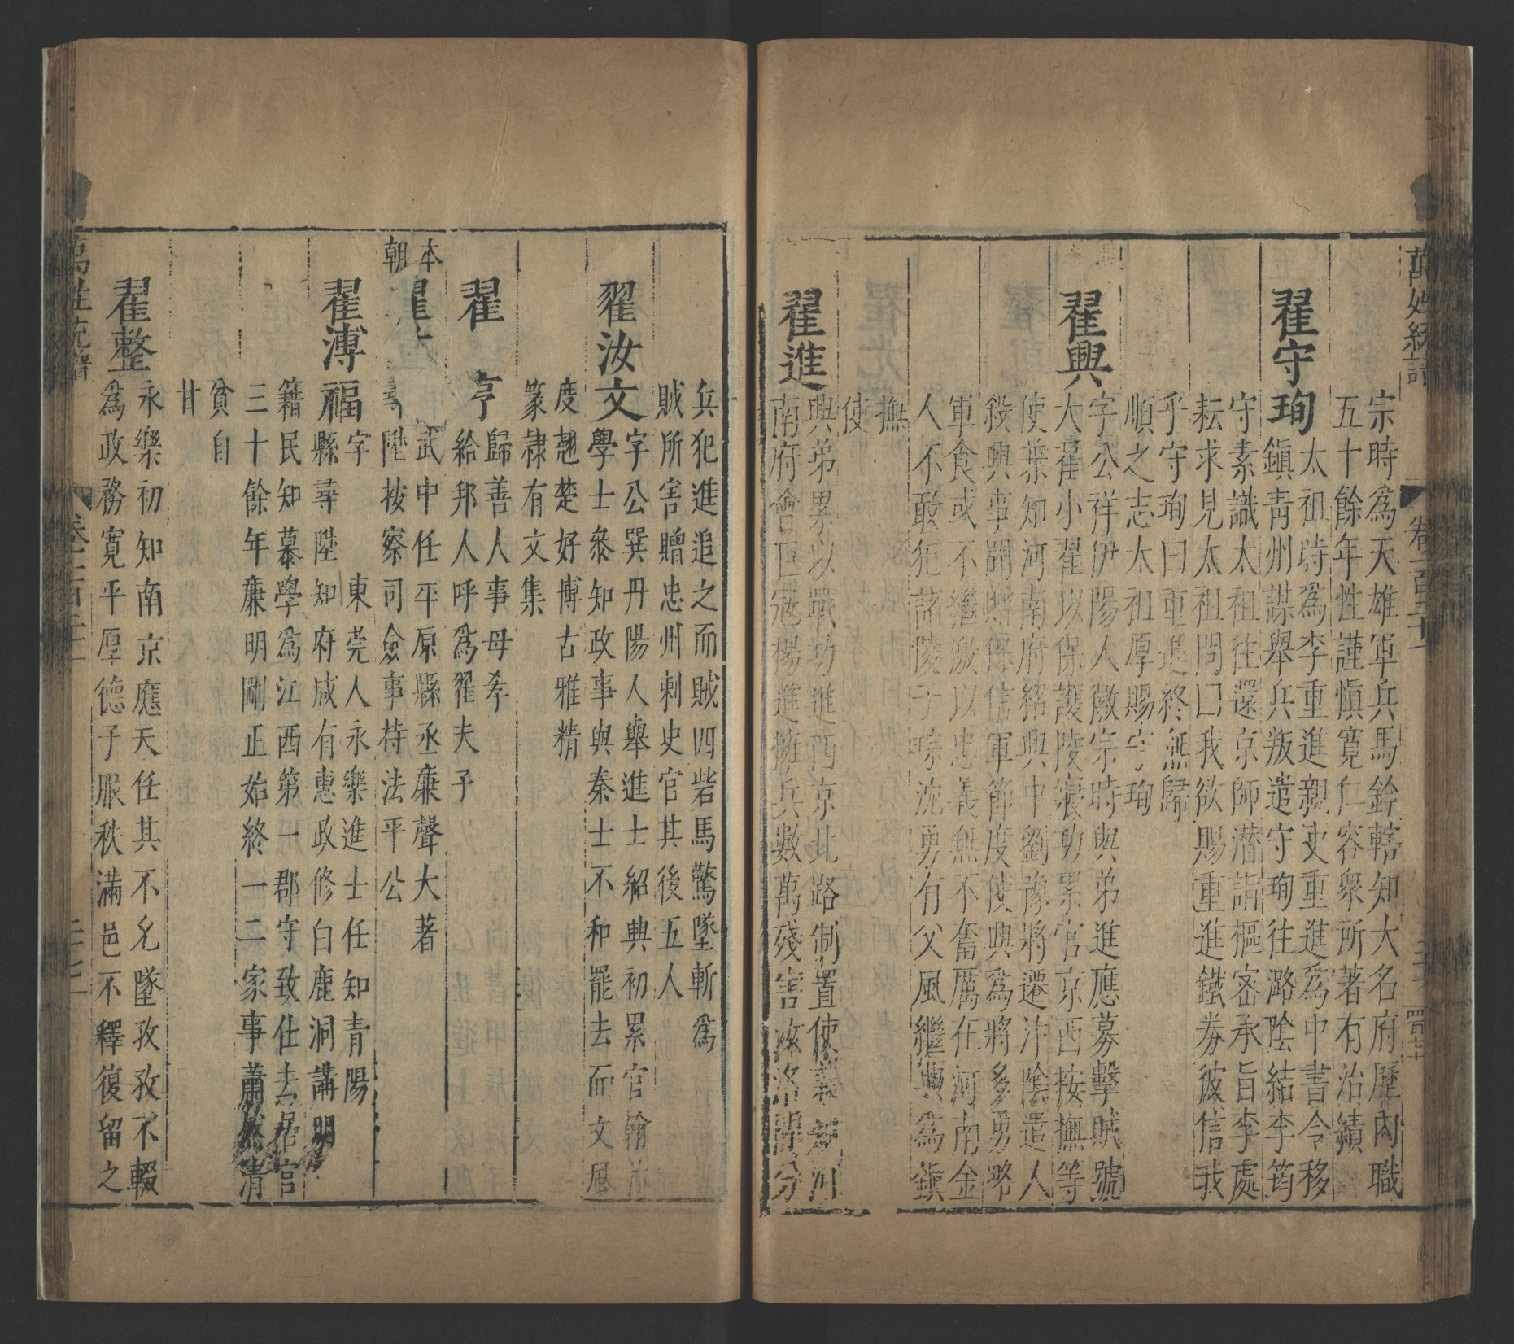 萬姓統譜
卷一百二十一
宗時爲天雄軍兵馬鈐轄知大名府歷內職
五十餘年性謹愼寬仁容衆所著有治績
翟守珣
太祖時爲李重進親吏重進爲中書令移
鎭靑州謀舉兵叛遣守珣往潞陰結李筠
守素識太祖往還京師潛詣樞密承旨李處
耘求見太祖問曰我欲賜重進鐵券彼信我
乎守珣曰重進終無歸
順之志太祖厚賜守珣
翟興
字公祥伊陽人徽宗時與弟進應募擊賊號
大翟小翟以保護陵寢功累官京西按撫等
使兼知河南府紹興中劉豫將遷汴陰遣人
殺興事聞贈保信軍節度使興爲將多勇略
軍食或不繼激以忠義無不奮厲在河南金
人不敢犯諸陵子琮沈勇有父風繼興爲鎭
撫
使
翟進
興弟累以戰功進西京北路制置使義
南府會巨寇楊進擁兵數萬殘害汝洛間分
兵犯進追之而賊四砦馬驚墜斬爲
賊所害贈忠州刺史官其後五人
翟汝文
字公巽丹陽人舉進士紹興初累官翰林
學士參知政事與秦士不和罷去而文風
度翹楚好博古雅精
篆隸有文集
翟亨
歸善人事母孝
給邦人呼爲翟夫子
本
朝
翟
武中任平原縣丞廉聲大著
陞按察司僉事持法平公
翟溥福
字東莞人永樂進士任知靑陽
縣尋陞知府咸有惠政修白鹿洞講明
籍民知慕學爲江西第一郡守致仕去居官
三十餘年廉明剛正始終一二家事蕭然淸
貧自
甘
翟整
永樂初知南京應天任其不允墜孜孜不輟
爲政務寬平厚德子服秋滿邑不釋復留之
萬姓統譜
卷一百二十一